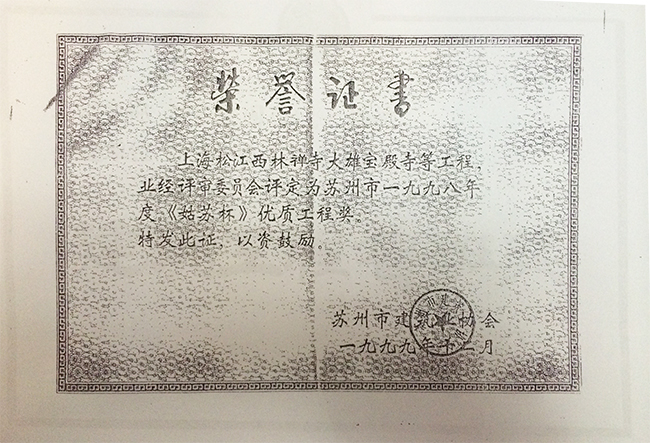 荣誉证书
上海松江西林禅寺大雄宝殿寺等工程,
业经评审委员会评定为苏州市一九九八年
度《姑苏杯》优质工程奖。
特发此证,以资鼓励。
苏州市建筑业协会
一九九九年十二月